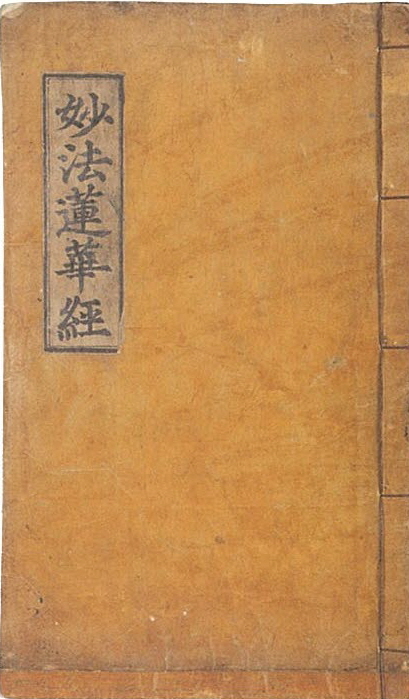 妙法蓮華經